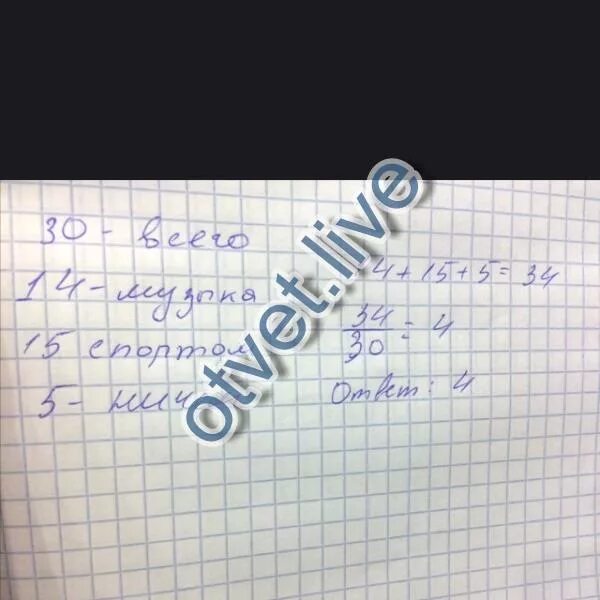 30 - всего
14 - музыка
15 спортом
5 -
4 + 15 + 5 = 34
34
30
= 4
Ответ: 4
otvet.live